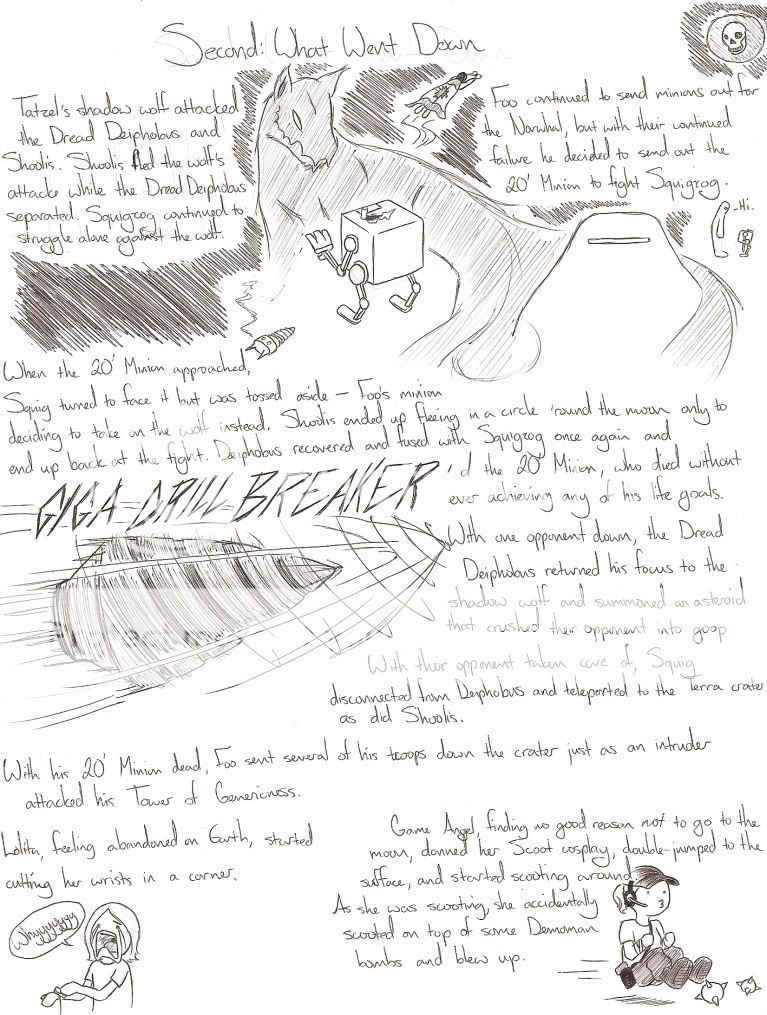 Second: What Went Down
Tatzel's shadow wolf attacked
the Dread Deiphobus and
Shoolis. Shoolis fled the wolf's
attacks while the Dread Deiphobus
separated. Squigrog continued to
struggle alone against the wolf.
Foo continued to send minions out for
the Narwhal, but with their continued
failure he decided to send out the
20' Minion to fight Squigrog.
-Hi.
When the 20' Minion approached,
Squig turned to face it but was tossed aside – Foo's minion
deciding to take on the wolf instead. Shoolis ended up fleeing in a circle 'round the moon only to
end up back at the fight. Deiphobus recovered and fused with Squigrog once again and
GIGA DRILL BREAKER
'd the 20' Minion, who died without
ever achieving any of his life goals.
With one opponent down, the Dread
Deiphobus returned his focus to the
shadow wolf and summoned an asteroid
that crushed their opponent into goop.
With their opponent taken care of, Squig
disconnected from Deiphobus and teleported to the Terra crater
as did Shoolis.
With his 20' Minion dead, Foo sent several of his troops down the crater just as an intruder
attacked his Tower of Genericness.
Lolita, feeling abandoned on Earth, started
cutting her wrists in a corner.
Whyyyyyyyy
Game Angel, finding no good reason not to go to the
moon, donned her Scoot cosplay, double-jumped to the
surface, and started scooting around.
As she was scooting, she accidentally
scooted on top of some Demoman
bombs and blew up.